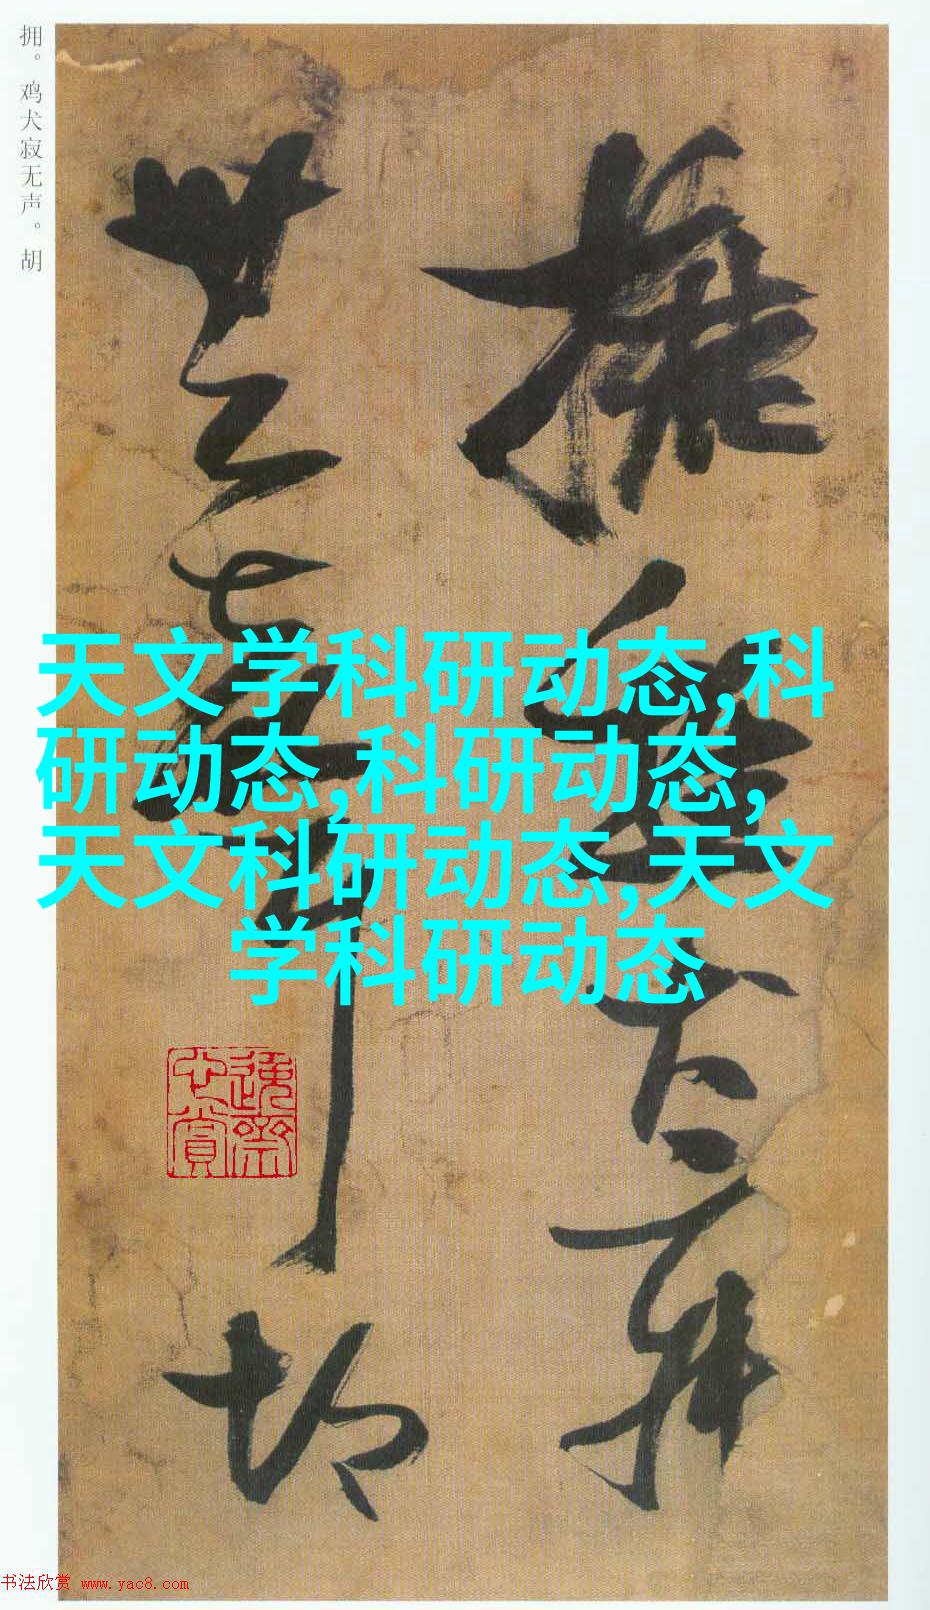 拥。鸡犬寂无声。胡
拥
鸡犬寂
无声
胡
天文学科研动态,科
研动态,科研动态,
天文科研动态,天文
学科研动态
书法欣赏 www.yac8.com